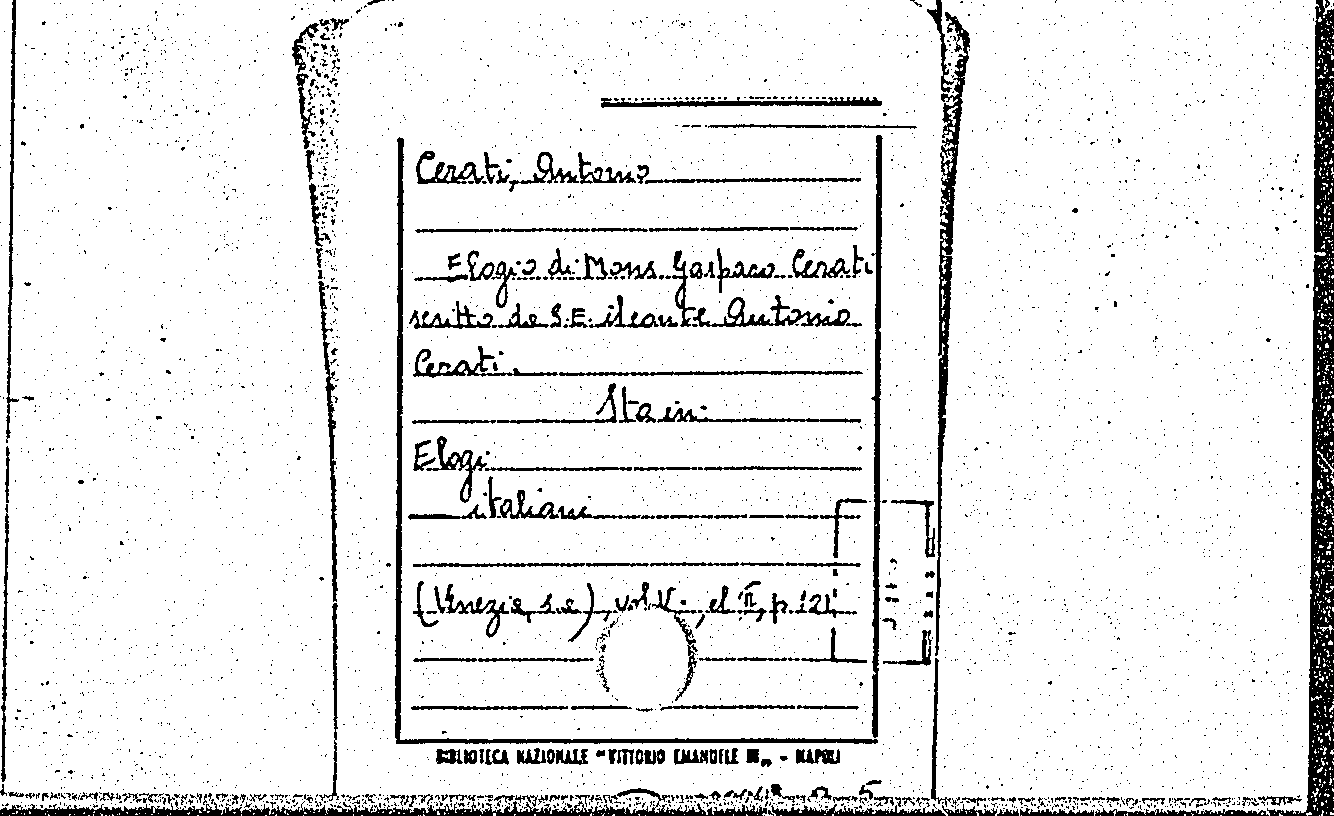 Cerati, Antonio
Elogio di Mons Gasparo Cerati
scritto da S.E. il conte Antonio
Cerati.
Sta in:
Elogi
italiani
(Venezia, s.a), vol V. , el II, p. 121
BIBLIOTECA NAZIONALE "VITTORIO EMANUELE III" - NAPOLI